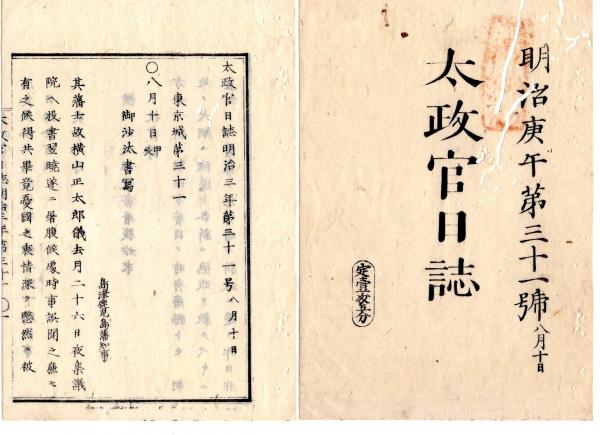 明治庚午第三十一號 八月十日
太政官日誌
定壹匁五分
太政官日誌明治三年第三十一号 八月十日
東京城第三十一
〇八月十日 甲
御沙汰書寫
鹿児島藩知事
其藩士故横山正太郎儀去月二十六日夜集議
院ヘ投書翌曉遂ニ屠腹候處時事誤聞之廉モ
有之候得共畢竟憂國之衷情深ク愍然ニ被